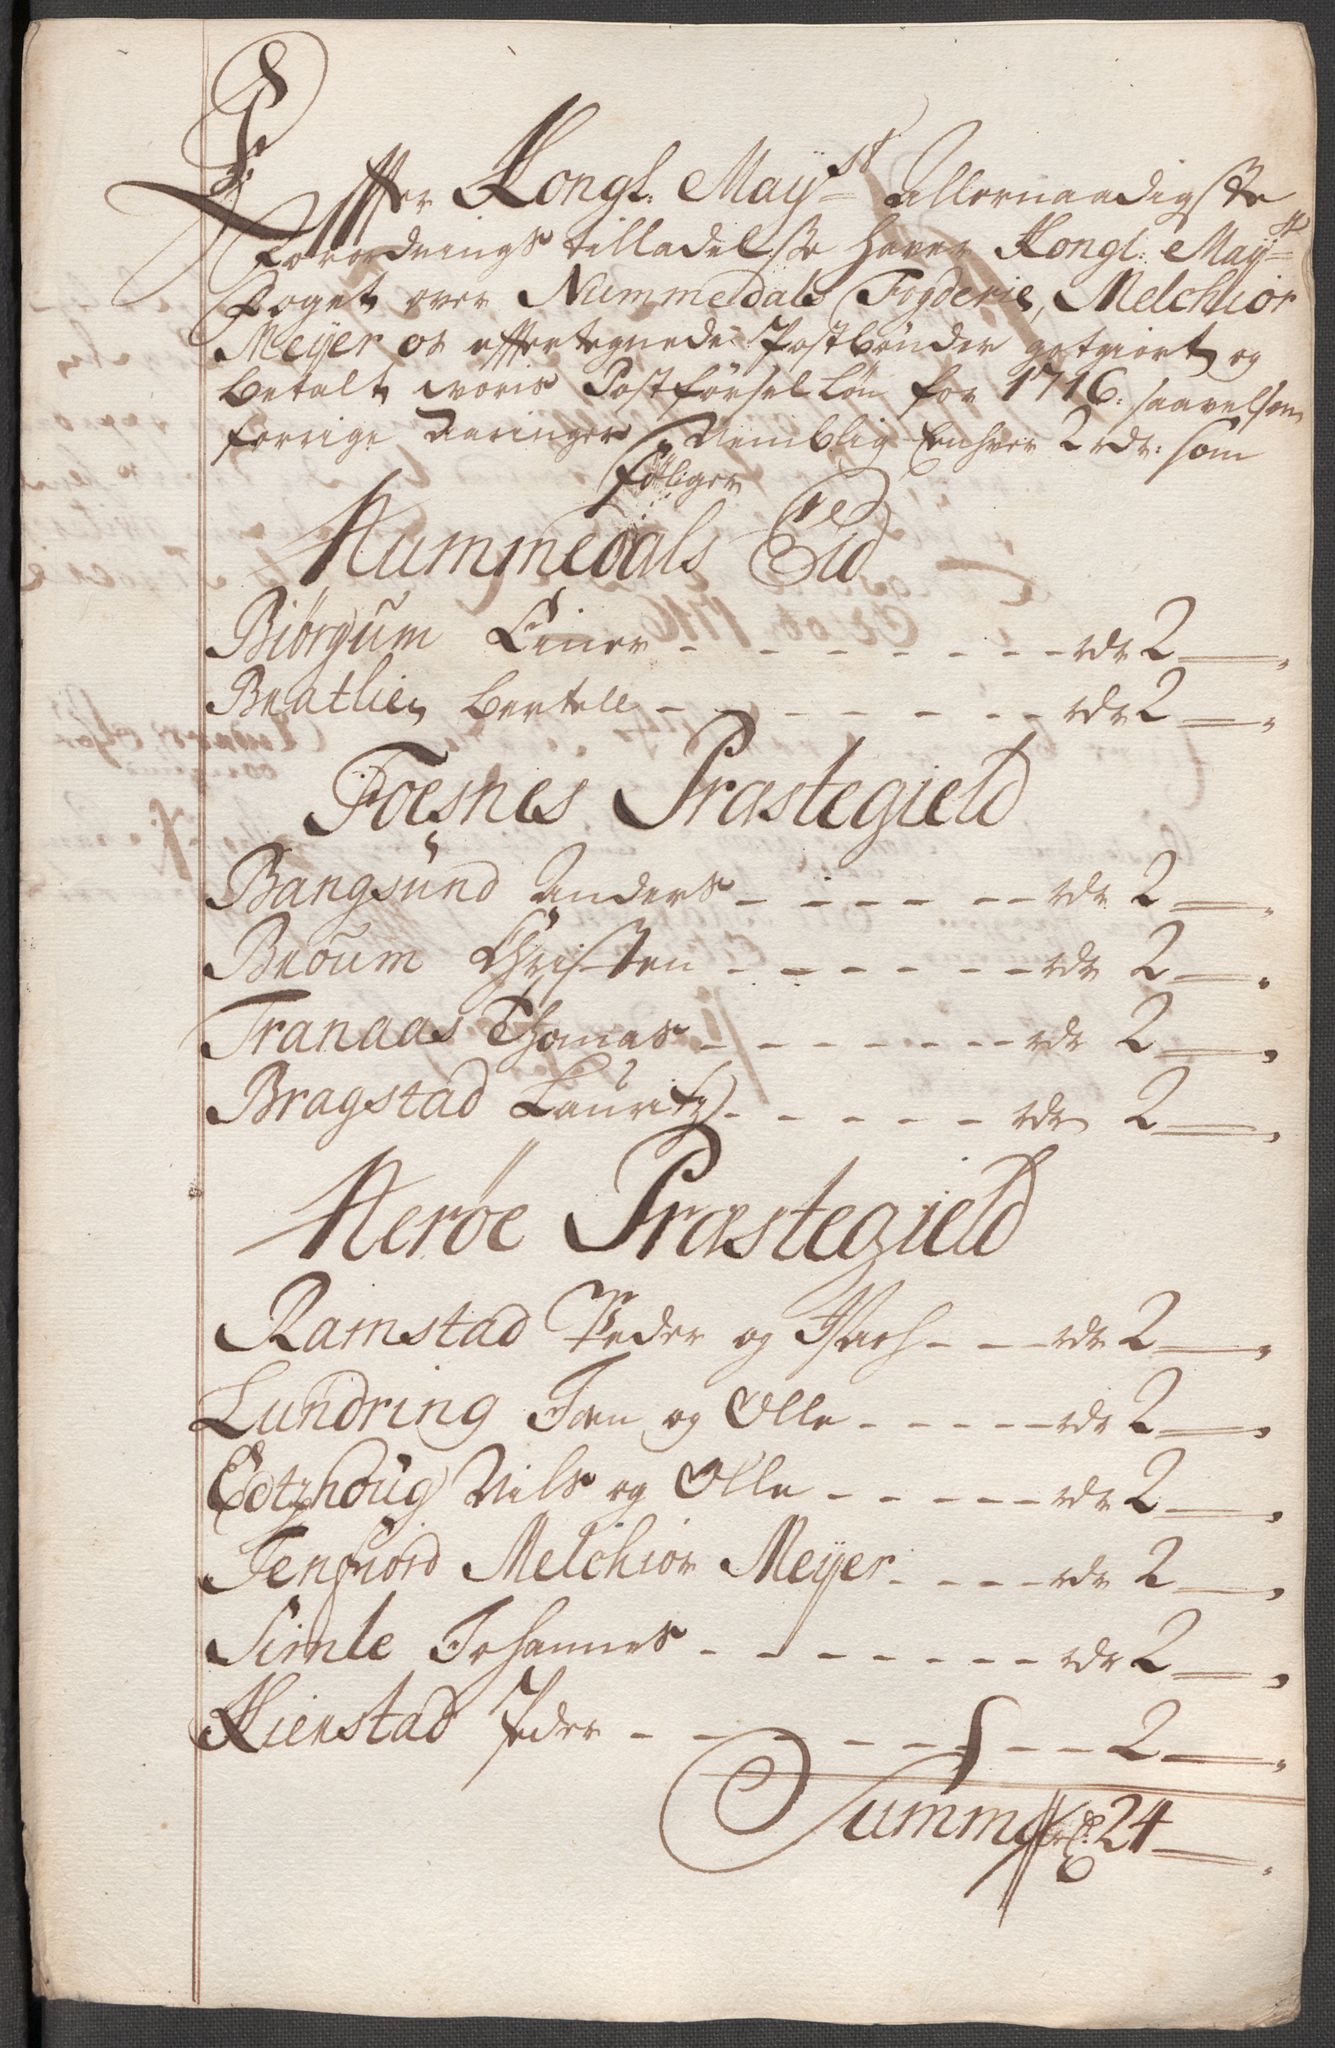 Effter Kongl: May:st Allernaadigste
Forordnings tilladelsse hafver Kongl: May:st
Foget over Nummedals Fogderie, Melchior
Meyer os effterskrefne Postbønder
betalt voris Postførsel Løn for 1716: saavelsom
forrige Aaringer Nemblig Enhver 2 rdr: som
følger
Nummedals Eid
Biørgum Einer - - - - - - - rdr 2 —
Bratlien Bertell - - - - - - rdr 2 —
Foesnes Præstegield
Bangsund Anders - - - - - - rdr 2 —
Broum Christen - - - - - - rdr 2 —
Tranaas Thomas - - - - - - - rdr 2 —
Bragstad Lauritz - - - - - rdr 2 —
Nerøe Præstegield
Ramstad Peder og Isach - - - rdr 2 —
Lundring Joen og Olle - - - - - rdr 2 —
Eetzhoug Nils og Olle - - - - - rdr 2 —
Tenfiord Melchior Meyer - - - - rdr 2 —
Simle Johannes - - - - - - - rdr 2 —
Kienstad Peder - - - - - - - 2 —
Summa 24 —